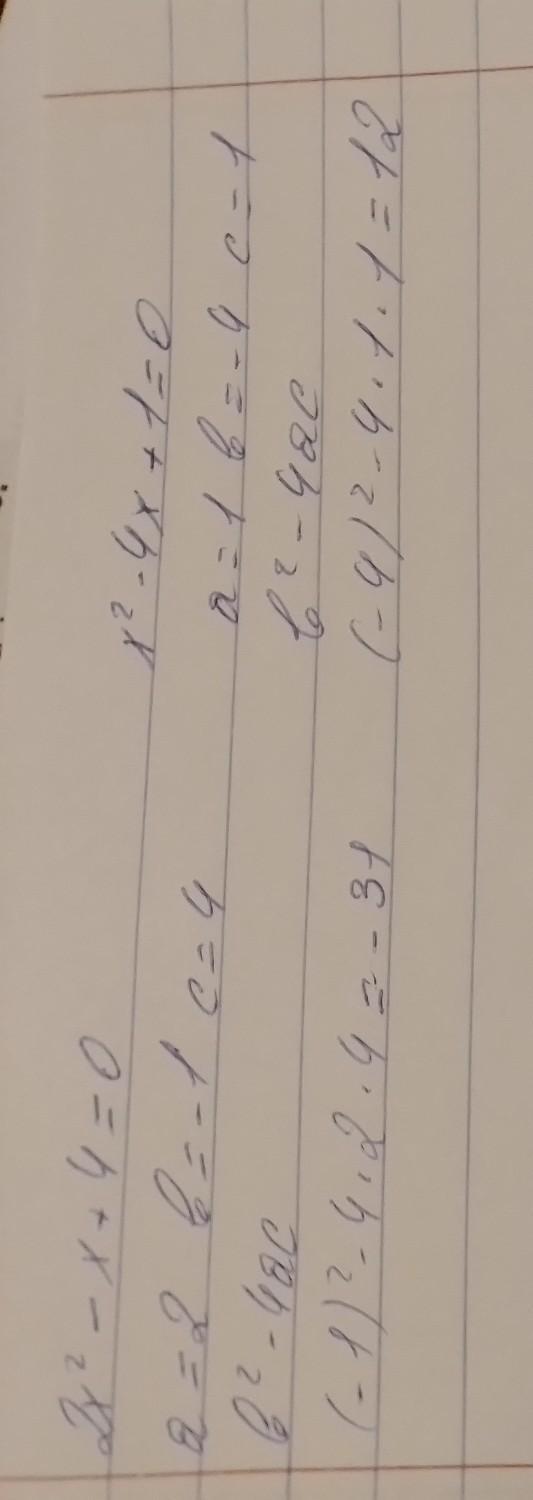 2x² - x + 4 = 0
a = 2 b = -1 c = 4
b² - 4ac
(-1)² - 4 · 2 · 4 = -31
x² - 4x + 1 = 0
a = 1 b = -4 c = 1
b² - 4ac
(-4)² - 4 · 1 · 1 = 12